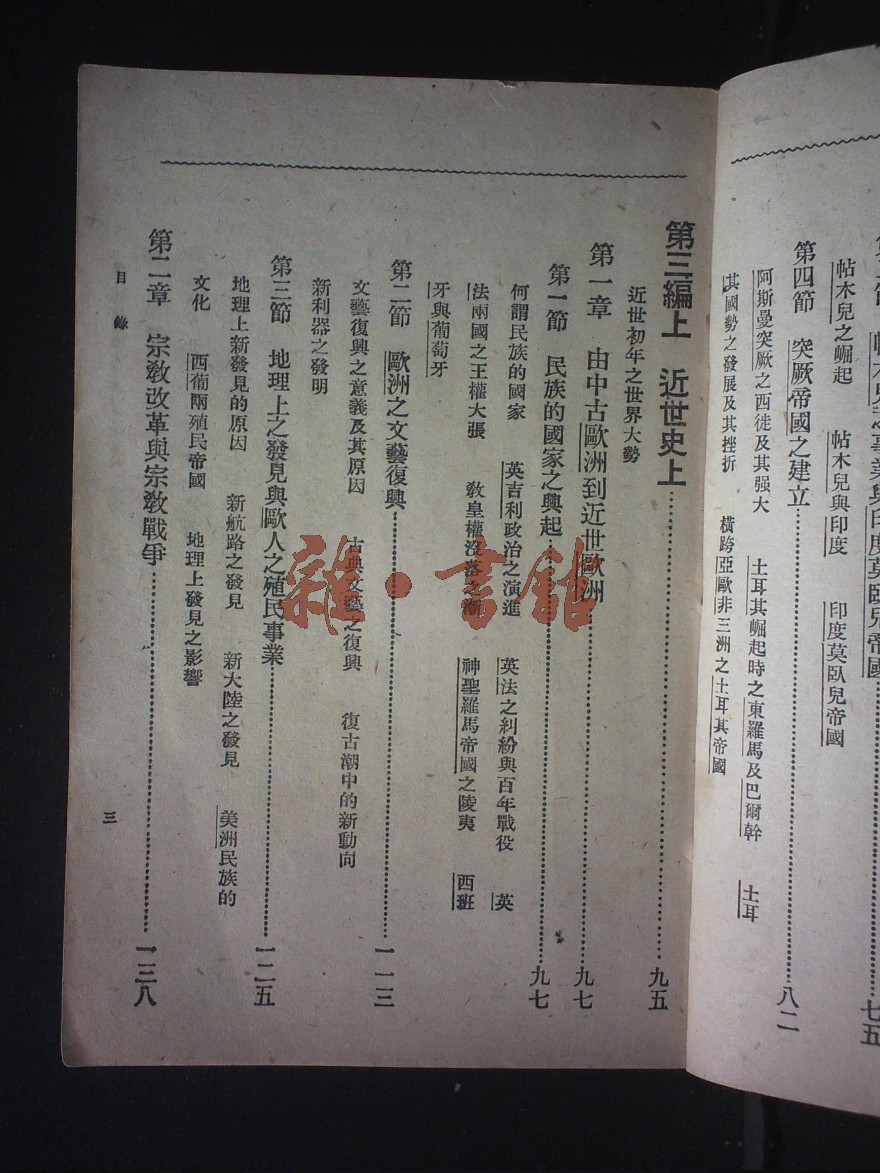 帖木兒之崛起　帖木兒與印度　印度莫臥兒帝國
第四節　突厥帝國之建立……八二
阿斯曼突厥之西徙及其强大　土耳其崛起時之東羅馬及巴爾幹　土耳
其國勢之發展及其挫折　橫跨亞歐非三洲之土耳其帝國
第三編上　近世史上……九五
近世初年之世界大勢
第一章　由中古歐洲到近世歐洲……九七
第一節　民族的國家之興起……九七
何謂民族的國家　英吉利政治之演進　英法之糾紛與百年戰役　英
法兩國之王權大張　敎皇權沒落之漸　神聖羅馬帝國之陵夷　西班
牙與葡萄牙
第二節　歐洲之文藝復興……一一三
文藝復興之意義及其原因　古典文藝之復興　復古潮中的新動向
新利器之發明
第三節　地理上之發見與歐人之殖民事業……一二五
地理上新發見的原因　新航路之發見　新大陸之發見　美洲民族的
文化　西葡兩殖民帝國　地理上發見之影響
第二章　宗敎改革與宗敎戰爭……一三八
目錄
三
雜·書館